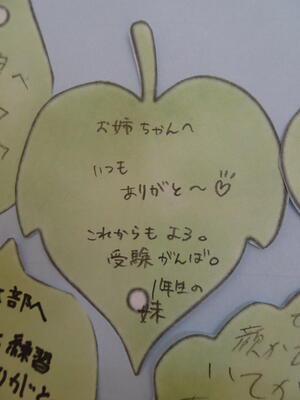 お姉ちゃんへ
いつも
ありがと〜♡
これからもよろ。
受験がんば。
1年生の
妹
部へ
練習
りがと
顔か
いてか